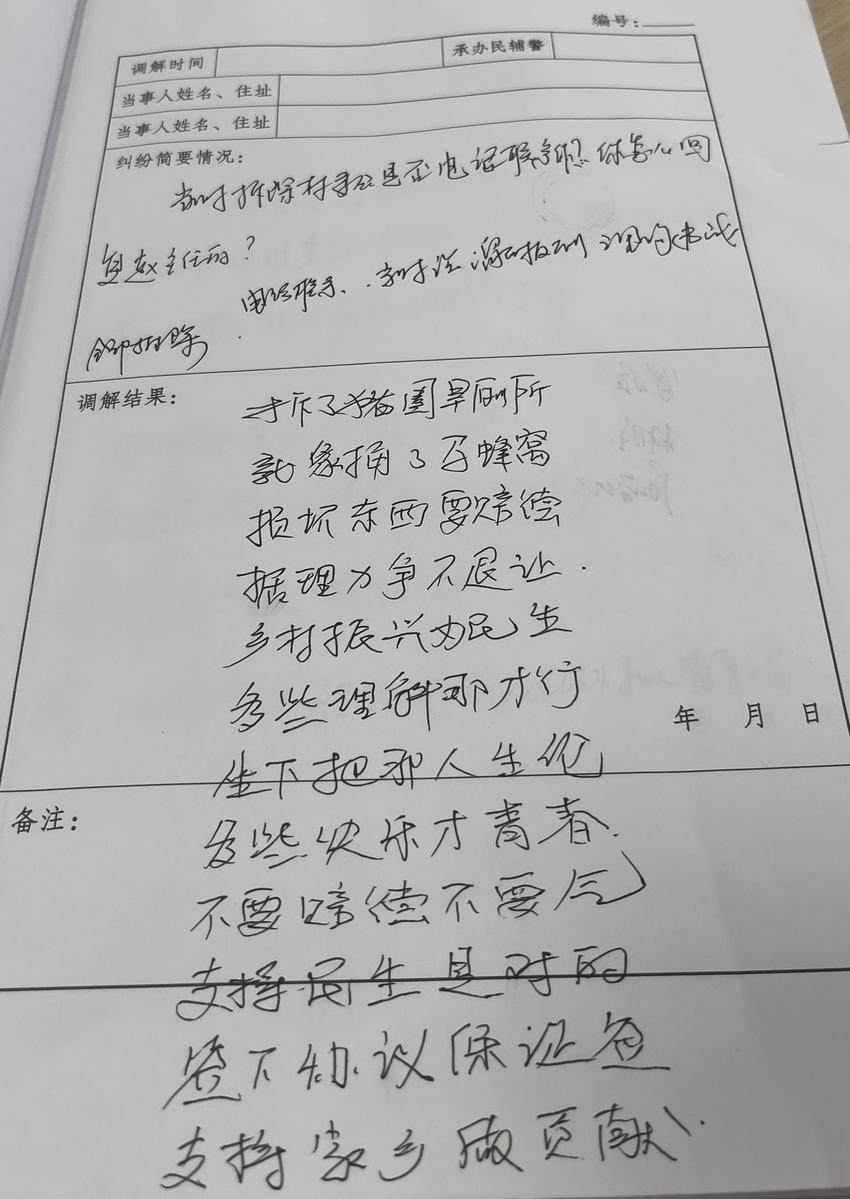 编号：
调解时间 承办民辅警
当事人姓名、住址
当事人姓名、住址
纠纷简要情况：
当时拆除村委是否电话联系？你怎么回
复赵主任的？
电话联系、
全部拆除
调解结果：
才拆了猪圈旱厕所
就象捅了马蜂窝
损坏东西要赔偿
据理力争不退让.
乡村振兴为民生
多些理解那才行
年 月 日
坐下把那人生论
备注：
多些快乐才青春.
不要赔偿不要气
支持民生是对的
签下协议保证书
支持家乡做贡献、